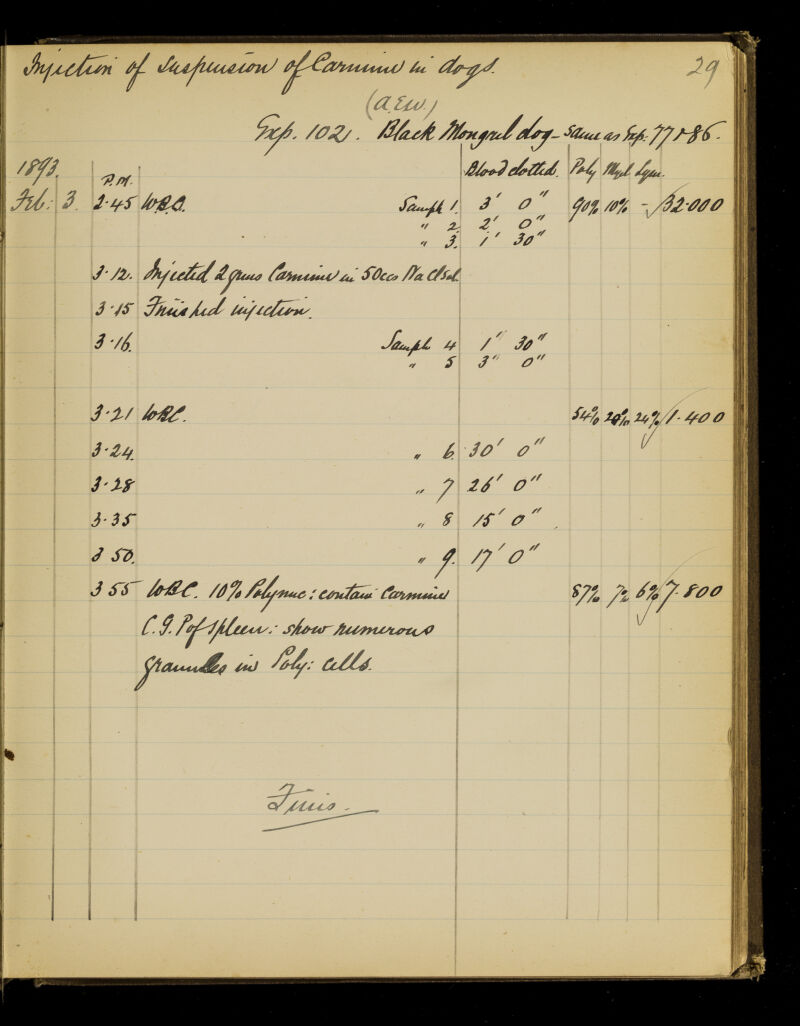 Injection of Suspension of Carmine in dogs. 29
(A.E.W.)
Exp. 102. Black Mongrel dog - same as Exp. 77 & 86.
1893. P.M. Blood clotted. Poly Myel Lym.
Feb: 3. 2.45 W.B.C. Sample 1. 3' 0" 90% 10% - 32.000
" 2. 2' 0"
" 3. 1' 30"
3.12. Injected 2 grms Carmine in 50ccs NaCl sol.
3.15 Finished injection.
3.16. Sample 4 1" 30"
" 5 3" 0"
3.21 WBC. 54% 24% 1.400
3.24. " 6. 30' 0"
3.28 " 7 26' 0"
3.35 " 8 15' 0"
3 50. " 9. 17' 0"
3 55 WBC. 10% Polynuc: contain Carmine 87% 7% 6% 7.800
C.G.P of Spleen: show numerous
granules in Poly: cells.
Finis.